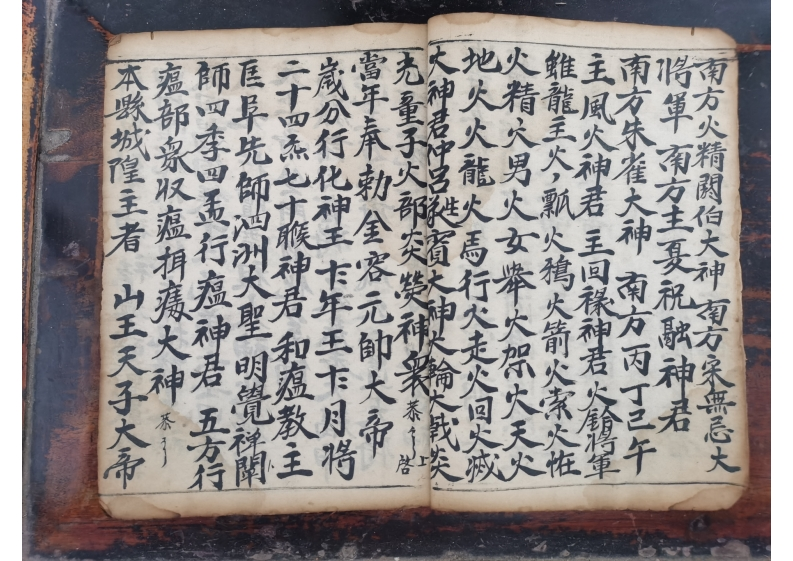 南方火精閼伯大神 南方宋無忌大
將軍 南方主夏祝融神君
南方朱雀大神 南方丙丁巳午
主風火神君 主回祿神君 火鎗將軍
雖龍主火，瓢火鴉火箭火索火
火精火男火女舉火架火天火
地火火龍火馬行火走火回火滅
大神君仲呂蕤賓大神火輪火戟炎
光童子火部炎熒神衆 恭 上啓
當年奉勅金容元帥大帝
歲分行化神王 年王 月將
二十四炁七十候神君 和瘟教主
匡阜先師泗洲大聖明覺禪
師四季四孟行瘟神君 五方行
瘟部衆收瘟攝大神 恭
本縣城隍主者 山王天子大帝